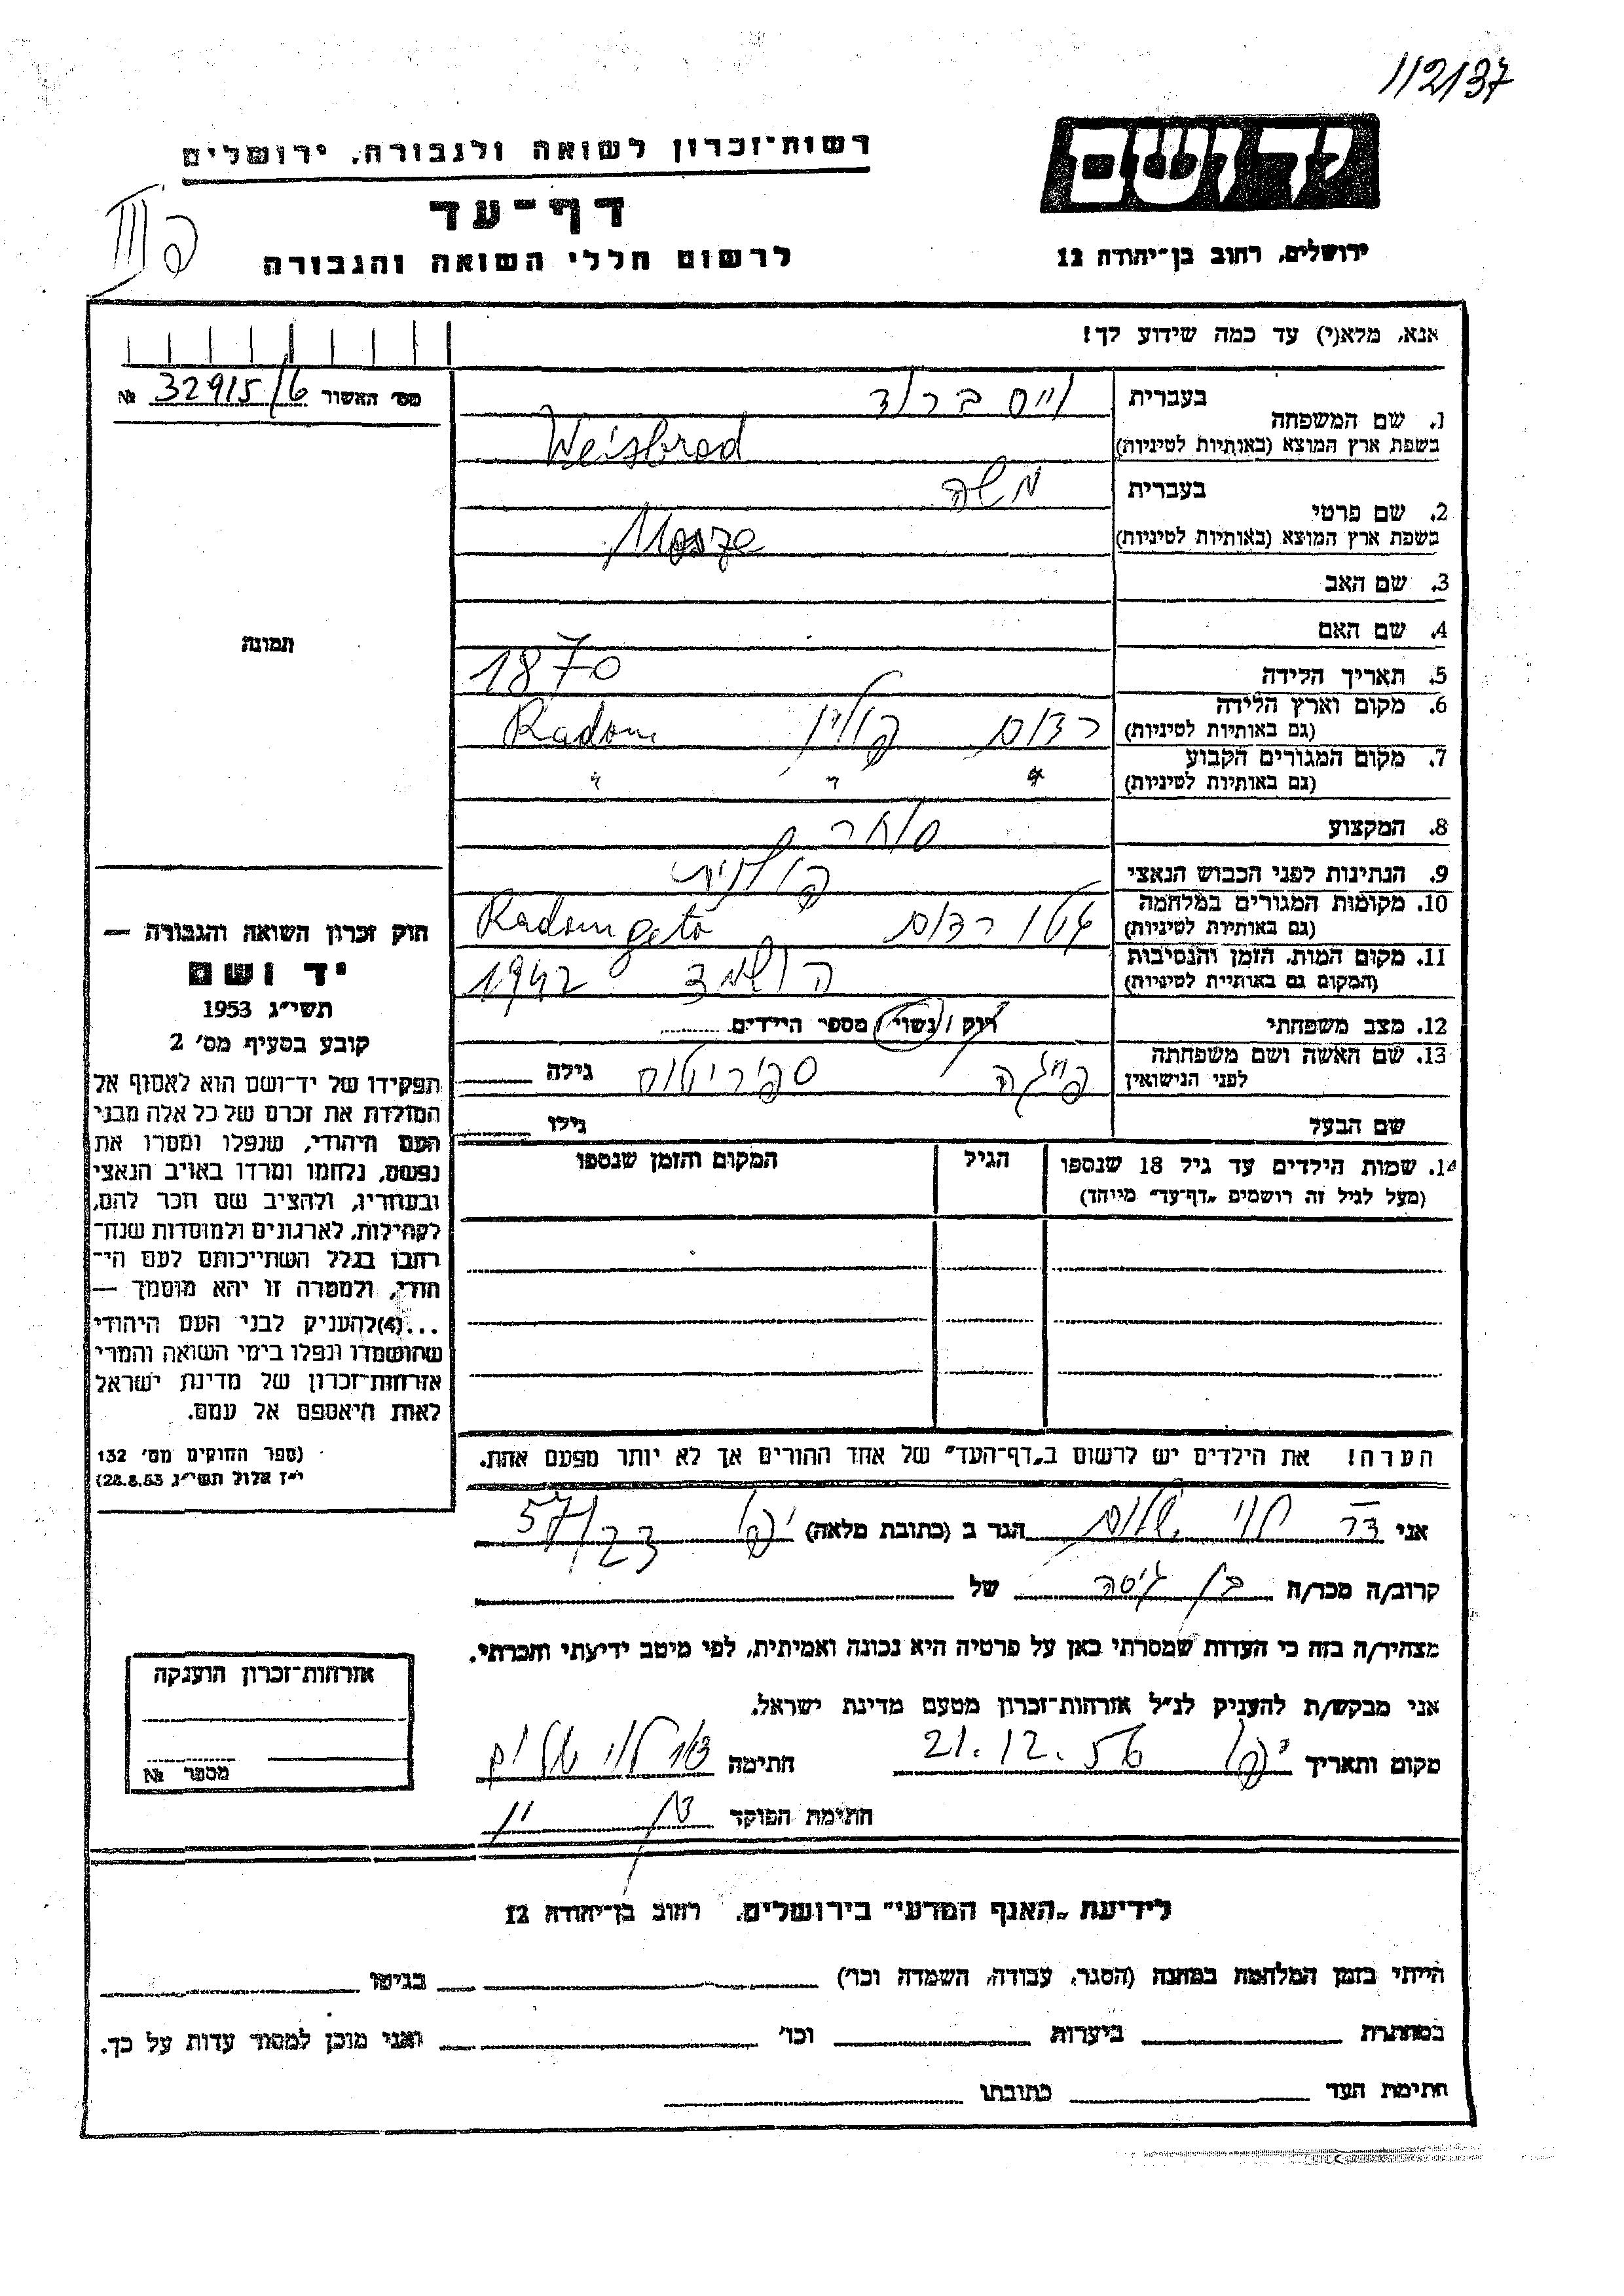 112137
יד ושם
רשות־זכרון לשואה ולגבורה, ירושלים
דף־עד
לרשום חללי השואה והגבורה
ירושלים, רחוב בן־יהודה 12
אנא, מלא(י) עד כמה שידוע לך!
מס׳ האשור 32915/6 №
1. שם המשפחה בעברית וייסברוד
בשפת ארץ המוצא (באותיות לטיניות) Weisbrod
2. שם פרטי בעברית משה
בשפת ארץ המוצא (באותיות לטיניות) Mosze
3. שם האב
4. שם האם
תמונה
5. תאריך הלידה 1870
6. מקום וארץ הלידה (גם באותיות לטיניות) רדום פולין Radom
7. מקום המגורים הקבוע (גם באותיות לטיניות) " " "
8. המקצוע סוחר
9. הנתינות לפני הכבוש הנאצי פולנית
10. מקומות המגורים במלחמה (גם באותיות לטיניות) גטו רדום Radom geto
11. מקום המות, הזמן והנסיבות (המקום גם באותיות לטיניות) הושמד 1942
12. מצב משפחתי רוק / נשוי / מספר הילדים
13. שם האשה ושם משפחתה לפני הנישואין פייגה גילה
שם הבעל גילו
14. שמות הילדים עד גיל 18 שנספו הגיל המקום והזמן שנספו
(מעל לגיל זה רושמים „דף־עד" מיוחד)
חוק זכרון השואה והגבורה —
יד ושם
תשי״ג 1953
קובע בסעיף מס׳ 2
תפקידו של יד־ושם הוא לאסוף אל
המולדת את זכרם של כל אלה מבני
העם היהודי, שנפלו ומסרו את
נפשם, נלחמו ומרדו באויב הנאצי
ובעוזריו, ולהציב שם וזכר להם,
לקהילות, לארגונים ולמוסדות שנח־
רחבו בגלל השתייכותם לעם הי־
הודי, ולמטרה זו יהא מוסמך —
...(4) להעניק לבני העם היהודי
שהושמדו ונפלו בימי השואה והמרי
אזרחות־זכרון של מדינת ישראל
לאות היאספם אל עמם.
(ספר החוקים מס׳ 132
י״ז אלול תשי״ג 28.8.53)
הערה! את הילדים יש לרשום ב„דף־העד" של אחד ההורים אך לא יותר מפעם אחת.
אני הגר ב (כתובת מלאה) יפו 57/23
קרוב/ה מכר/ה בן גיסה של
מצהיר/ה בזה כי העדות שמסרתי כאן על פרטיה היא נכונה ואמיתית, לפי מיטב ידיעתי והכרתי.
אני מבקש/ת להעניק לנ״ל אזרחות־זכרון מטעם מדינת ישראל.
מקום ותאריך יפו 21.12.56 חתימה
חתימת הפוקד
אזרחות־זכרון הוענקה
מספר №
לידיעת „האגף המדעי" בירושלים, רחוב בן־יהודה 12
הייתי בזמן המלחמה במחנה (הסגר, עבודה, השמדה וכו׳) בגיטו
במחתרת ביערות וכו׳ ואני מוכן למסור עדות על כך.
חתימת העד כתובתו